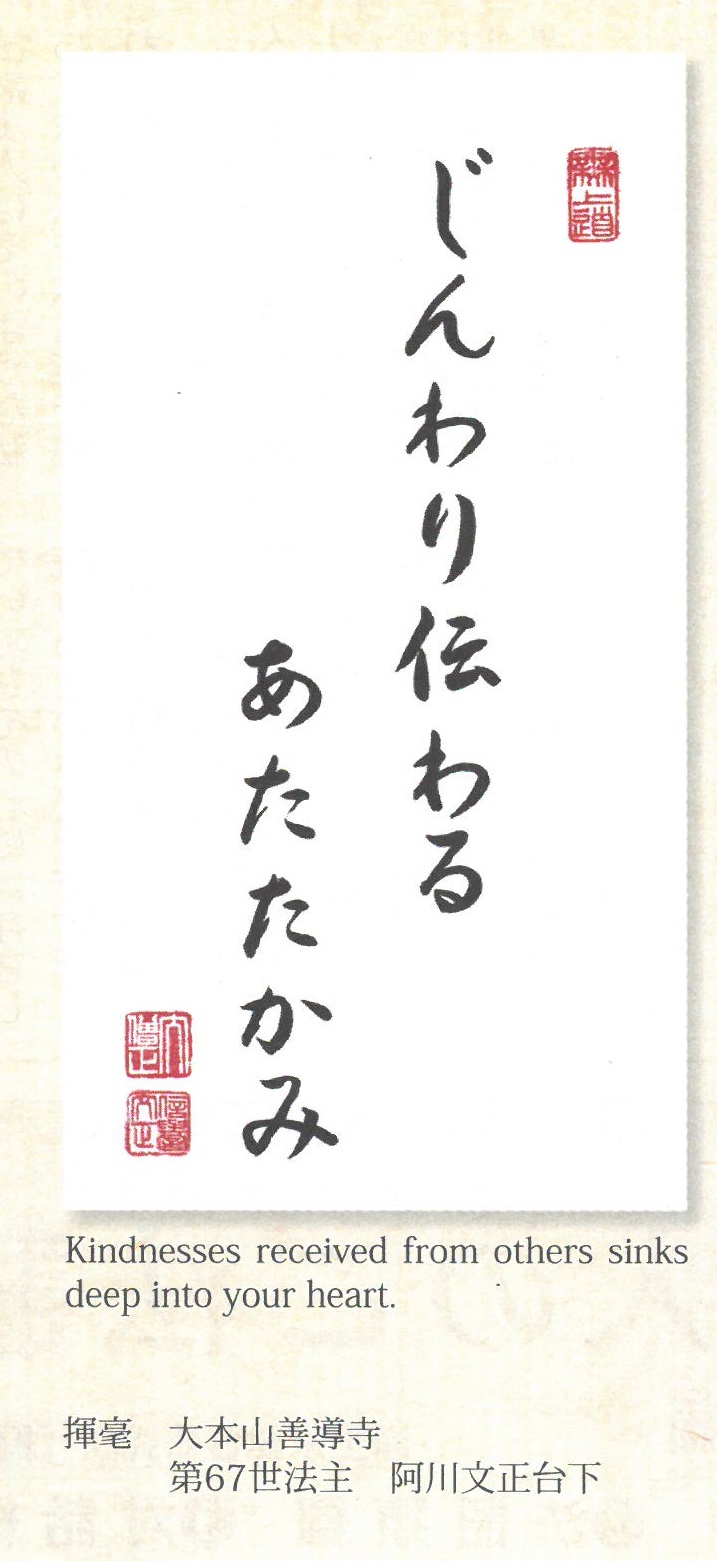 じんわり伝わる
あたたかみ
Kindnesses received from others sinks
deep into your heart.
揮毫　大本山善導寺
第67世法主　阿川文正台下